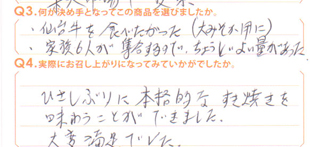 Q3.何が決め手となってこの商品を選びましたか。
・仙台牛を食べたかった(大みそか用に)
・家族6人が集合するので、ちょうどよい量があった。
Q4.実際にお召し上がりになってみていかがでしたか。
ひさしぶりに本格的なすき焼きを
味わうことができました。
大変満足でした。